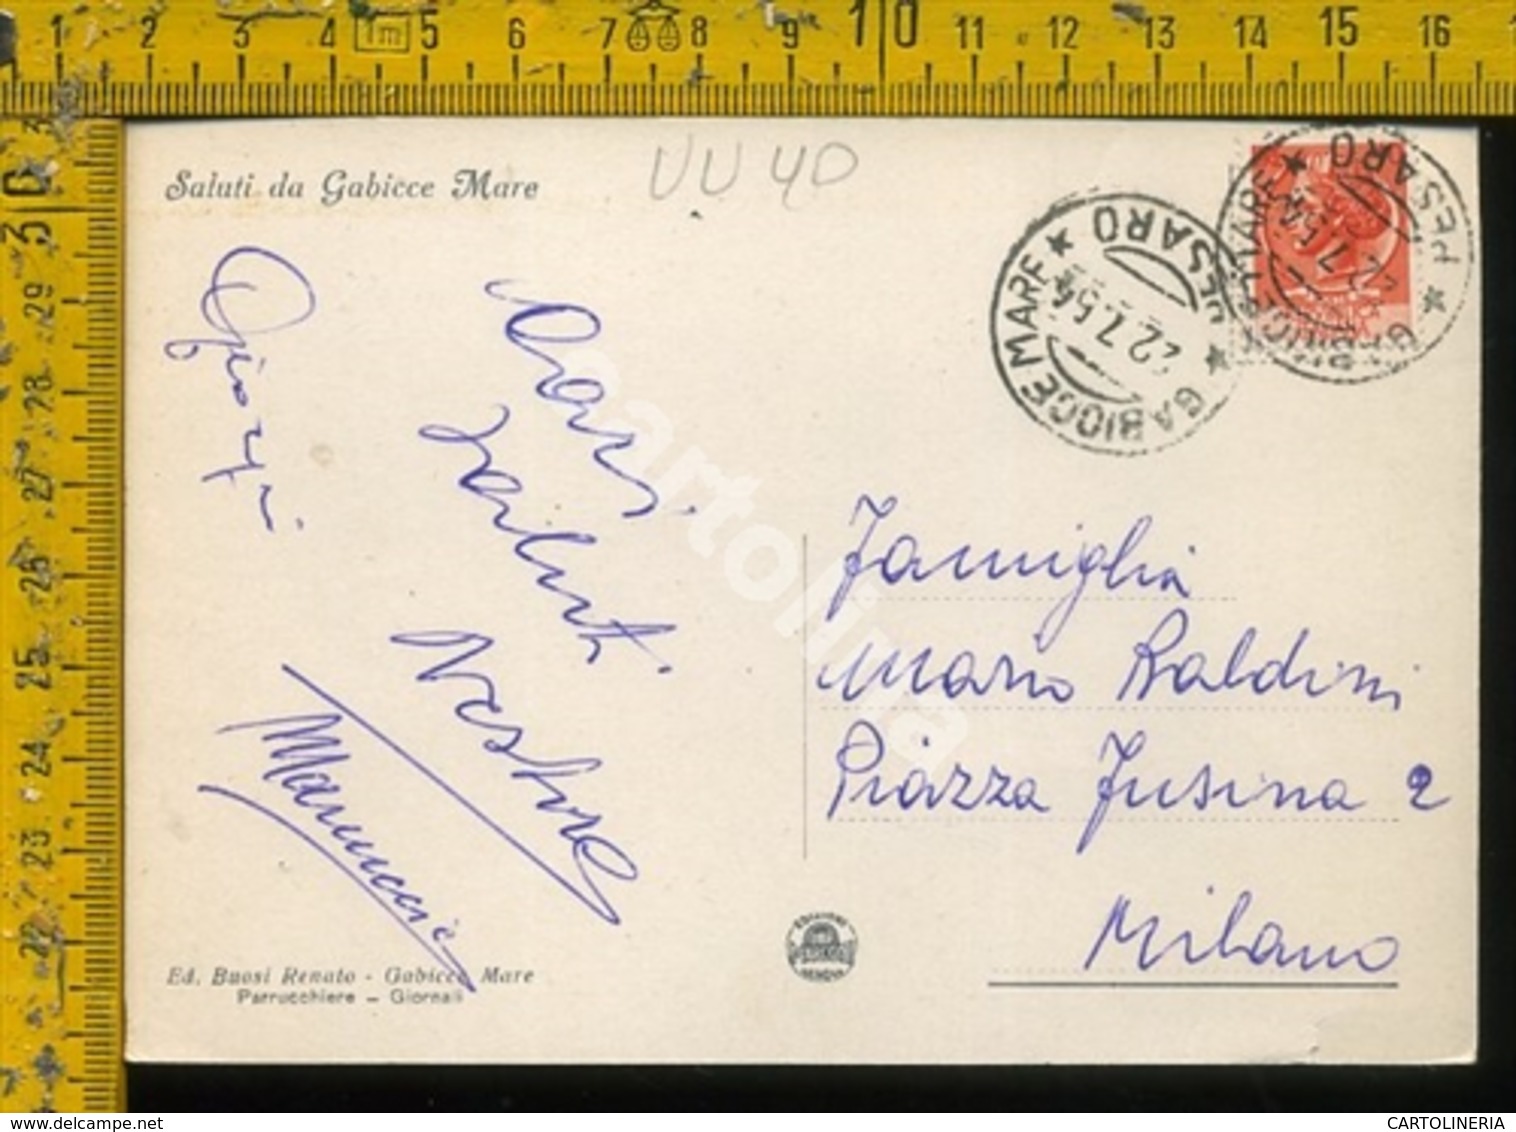 1 2 3 4 1m 5 6 7 8 9 10 11 12 13 14 15 16
Saluti da Gabicce Mare
VU 40
GABICCE MARE ★ PESARO ★
22.7.54
GABICCE MARE ★ PESARO ★
22.7.54
Cari
saluti
Giorgi
Famiglia
Mario Baldini
Piazza Fusina 2
Milano
EDIZIONI
GENOVA
Ed. Buosi Renato - Gabicce Mare
Parrucchiere - Giornali
30 29 28 27 26 25 24 23 22
cartolina
www.delcampe.net
CARTOLINERIA